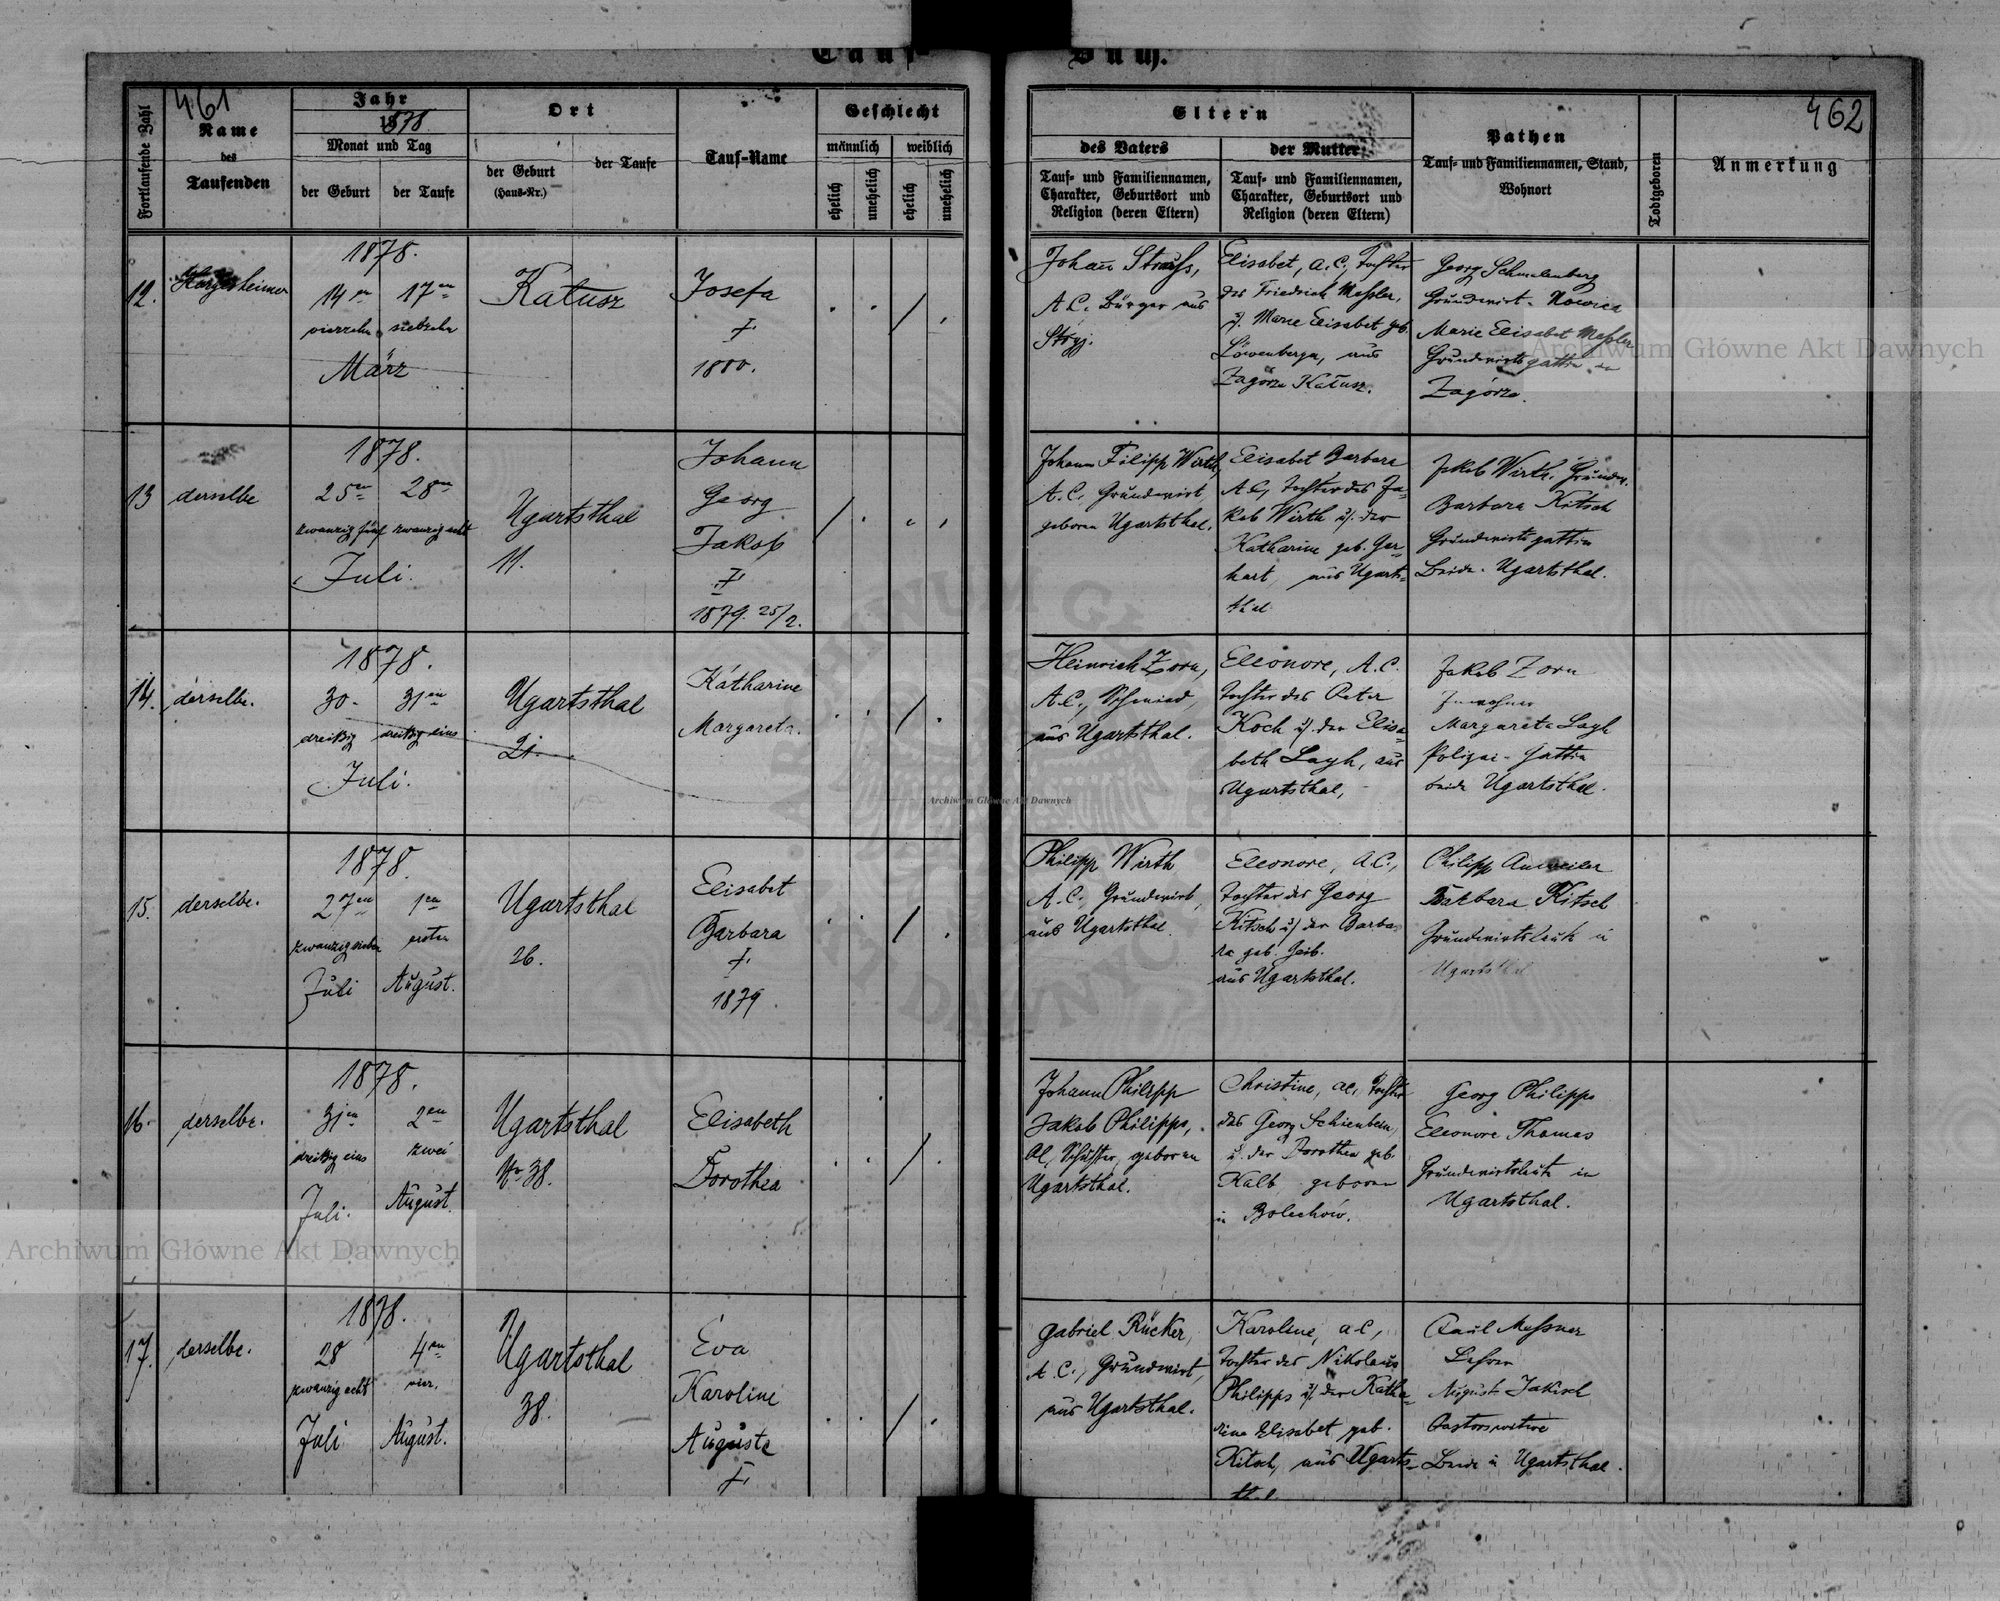 Tauf-Buch.
461
Fortlaufende Zahl
Name
des
Taufenden
Jahr
1878.
Monat und Tag
der Geburt
der Taufe
Ort
der Geburt
(Haus-Nr.)
der Taufe
Tauf-Name
Geschlecht
männlich
weiblich
ehelich
unehelich
ehelich
unehelich
Eltern
des Vaters
Tauf- und Familiennamen,
Charakter, Geburtsort und
Religion (deren Eltern)
der Mutter
Tauf- und Familiennamen,
Charakter, Geburtsort und
Religion (deren Eltern)
Pathen
Tauf- und Familiennamen, Stand,
Wohnort
Todtgeboren
462
Anmerkung
12.
1878.
14en 17en
vierzehn siebzehn
März
Katusz
Josefa
†
1880.
Johann Strauss,
A.C. Bürger aus
Stryj.
Elisabet, A.C., Tochter
des Friedrich Messler,
u. Marie Elisabet geb.
Löwenberger, aus
Zagórze Katusz.
Georg Schmalenberg
Grundwirt. Nowica
Marie Elisabet Messler
Grundwirtsgattin in
Zagórze.
13
derselbe
1878.
25en 28en
zwanzig fünf zwanzig acht
Juli.
Ugartsthal
11.
Johann
Georg
Jakob
†
1879. 25/2.
Johann Filipp Wirth,
A.C. Grundwirt,
geboren Ugartsthal.
Elisabet Barbara
A.C., Tochter des Ja-
kob Wirth u. der
Katharine geb. Ger-
hart, aus Ugarts-
thal
Jakob Wirth. Grundw.
Barbara Kitsch
Grundwirtsgattin
Beide. Ugartsthal.
14.
derselbe.
1878.
30. 31en
dreißig dreißig eins
Juli.
Ugartsthal
21.
Katharine
Margareta.
Heinrich Zorn,
A.C., Schmied,
aus Ugartsthal.
Eleonore, A.C.
Tochter des Peter
Koch u. der Elisa-
beth Layh, aus
Ugartsthal,
Jakob Zorn
Inwohner
Margareta Layh
Polizei-Gattin
beide Ugartsthal.
15.
derselbe.
1878.
27en 1en
zwanzig sieben ersten
Juli August.
Ugartsthal
26.
Elisabet
Barbara
†
1879.
Philipp Wirth
A.C., Grundwirt,
aus Ugartsthal
Eleonore, A.C.,
Tochter des Georg
Kitsch u. der Barba-
ra geb. Geib.
aus Ugartsthal.
Philipp Anweiler
Barbara Kitsch
Grundwirtsleute in
Ugartsthal
16.
derselbe.
1878.
31en 2en
dreißig eins zwei
Juli. August.
Ugartsthal
Nr 38.
Elisabeth
Dorothea
Johann Philipp
Jakob Philipps,
AC, Schuster, geboren
Ugartsthal.
Christine, AC, Tochter
des Georg Schienbein,
u. der Dorothea geb.
Kalb geboren
in Bolechów.
Georg Philipps
Eleonore Thomas
Grundwirtsleute in
Ugartsthal.
17.
derselbe.
1878.
28 4en
zwanzig acht vier.
Juli August.
Ugartsthal
38.
Eva
Karoline
Auguste
†
Gabriel Rücker,
A.C., Grundwirt,
aus Ugartsthal.
Karoline, AC,
Tochter des Nikolaus
Philipps u. der Katha-
rina Elisabet geb.
Kitsch, aus Ugarts-
thal.
Paul Messner
Lehrer
August Jakisch
Pastorswitwe
Beide in Ugartsthal.
Archiwum Główne Akt Dawnych
Archiwum Główne Akt Dawnych
Archiwum Główne Akt Dawnych